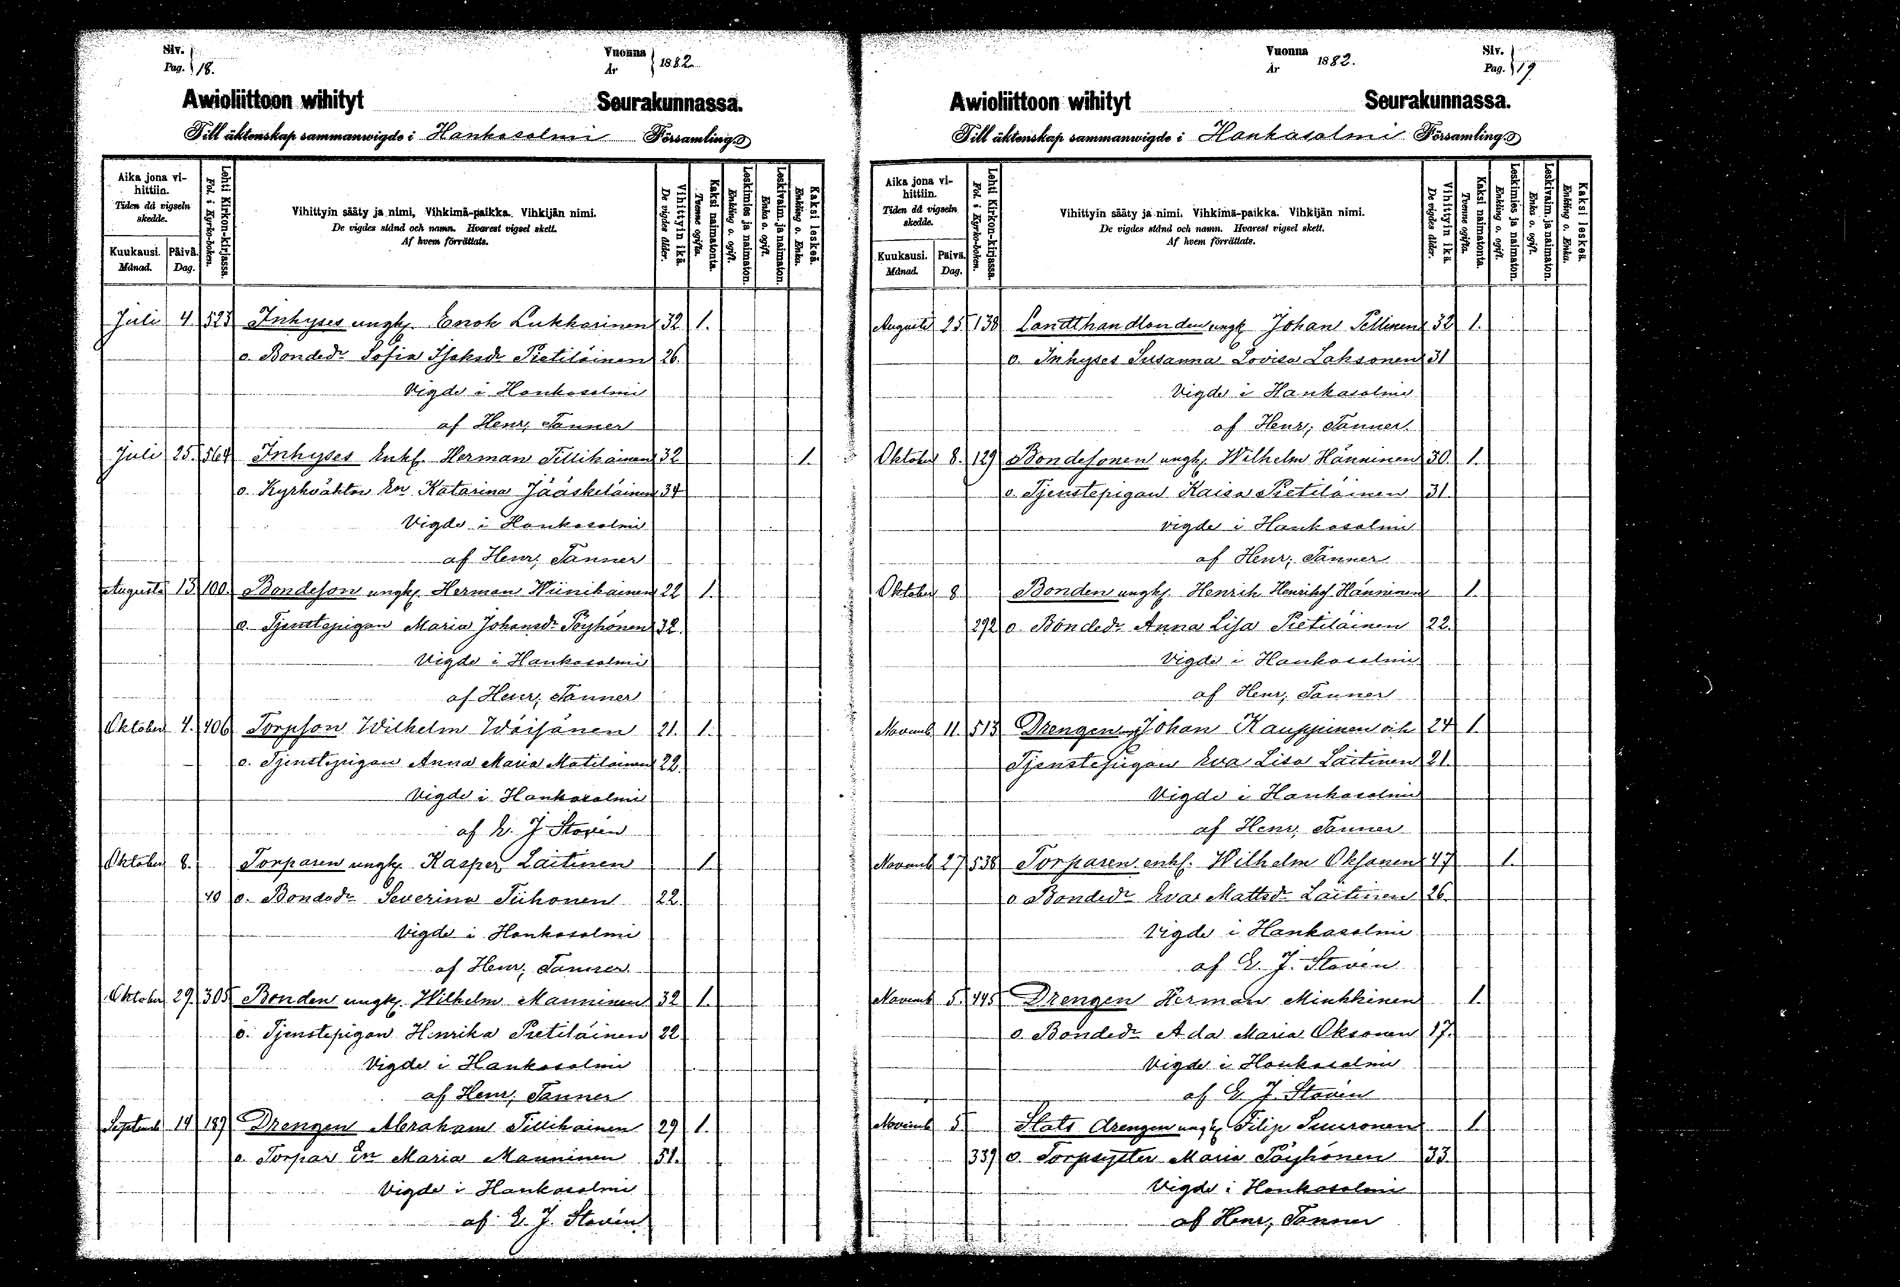 Siv.
Pag. 18.
Vuonna
År 1882
Awioliittoon wihityt Seurakunnassa.
Till äktenskap sammanwigde i Hankasalmi Församling
Aika jona vihittiin.
Tiden då vigseln skedde.
Kuukausi.
Månad.
Päivä.
Dag.
Lehti Kirkon-kirjassa.
Fol. i Kyrko-boken.
Vihittyin sääty ja nimi, Vihkimä-paikka. Vihkijän nimi.
De vigdes stånd och namn. Hvarest vigsel skett.
Af hvem förrättats.
Vihittyin ikä.
De vigdes ålder.
Kaksi naimatonta.
Tvenne ogifta.
Leskimies ja naimaton.
Enkling o. ogift.
Leskivaim. ja naimaton.
Enka o. ogift.
Kaksi leskeä.
Enkling o. Enka.
Juli 4 523 Inhyses ungk. Enok Lukkarinen 32 1.
o. Bondedr Sofia Isaksdr Pietiläinen 26.
Vigde i Hankasalmi
af Henr; Tanner
Juli 25. 564 Inhyses Enkl. Herman Tillikainen 32 1.
o. Kyrkväktar En Katarina Jääskeläinen 34
Vigde i Hankasalmi
af Henr; Tanner
Augusti 13. 100. Bondeson ungk. Herman Wiinikainen 22 1.
o. Tjenstepigan Maria Johansdr Pöyhönen 32.
Vigde i Hankasalmi
af Henr; Tanner
Oktober 4. 406 Torpson Wilhelm Wäisänen 21. 1.
o. Tjenstepigan Anna Maria Matilainen 22.
Vigde i Hankasalmi
af E. J Stovén
Oktober 8. Torparen ungk. Kasper Laitinen 1.
40 o. Bondedr Severina Tiihonen 22.
Vigde i Hankasalmi
af Henr; Tanner
Oktober 29. 305 Bonden ungk. Wilhelm Manninen 32 1.
o. Tjenstepigan Henrika Pietiläinen 22
Vigde i Hankasalmi
af Henr; Tanner
Septemb 14 187 Drengen Abraham Tillikainen 29 1.
o. Torpar En Maria Manninen 51.
Vigde i Hankasalmi
af E. J. Stovén
Vuonna
År 1882.
Siv.
Pag. 19
Awioliittoon wihityt Seurakunnassa.
Till äktenskap sammanwigde i Hankasalmi Församling
Aika jona vihittiin.
Tiden då vigseln skedde.
Kuukausi.
Månad.
Päivä.
Dag.
Lehti Kirkon-kirjassa.
Fol. i Kyrko-boken.
Vihittyin sääty ja nimi. Vihkimä-paikka. Vihkijän nimi.
De vigdes stånd och namn. Hvarest vigsel skett.
Af hvem förrättats.
Vihittyin ikä.
De vigdes ålder.
Kaksi naimatonta.
Tvenne ogifta.
Leskimies ja naimaton.
Enkling o. ogift.
Leskivaim. ja naimaton.
Enka o. ogift.
Kaksi leskeä.
Enkling o. Enka.
Augusti 25 138 Landthandlanden ungk Johan Pellinen 32 1.
o. Inhyses Susanna Lovisa Laksonen 31
Vigde i Hankasalmi
af Henr; Tanner.
Oktober 8. 129 Bondesonen ungk. Wilhelm Hänninen 30. 1.
o. Tjenstepigan Kaisa Pietiläinen 31.
vigde i Hankasalmi
af Henr; Tanner
Oktober 8 Bonden ungk. Henrik Henriksf Hänninen 1.
292 o. Bondedr Anna Lisa Pietiläinen 22.
Vigde i Hankasalmi
af Henr; Tanner
Novemb 11 513 Drengen ungk Johan Kauppinen och 24 1.
Tjenstepigan Eva Lisa Laitinen 21.
Vigde i Hankasalmi
af Henr; Tanner
Novemb 27 538 Torparen enkl. Wilhelm Oksanen 47 1.
o Bondedr Eva Mattsdr Laitinen 26.
Vigde i Hankasalmi
af E. J. Stovén
Novemb 5. 445 Drengen Herman Minkkinen 1.
o. Bondedr Ada Maria Oksanen 17.
Vigde i Hankasalmi
af E J. Stovén
Novemb 5 Stats drengen ungk Filip Suuronen 1.
339 o. Torpsyster Maria Pöyhönen 33.
Vigde i Hankasalmi
af Henr; Tanner